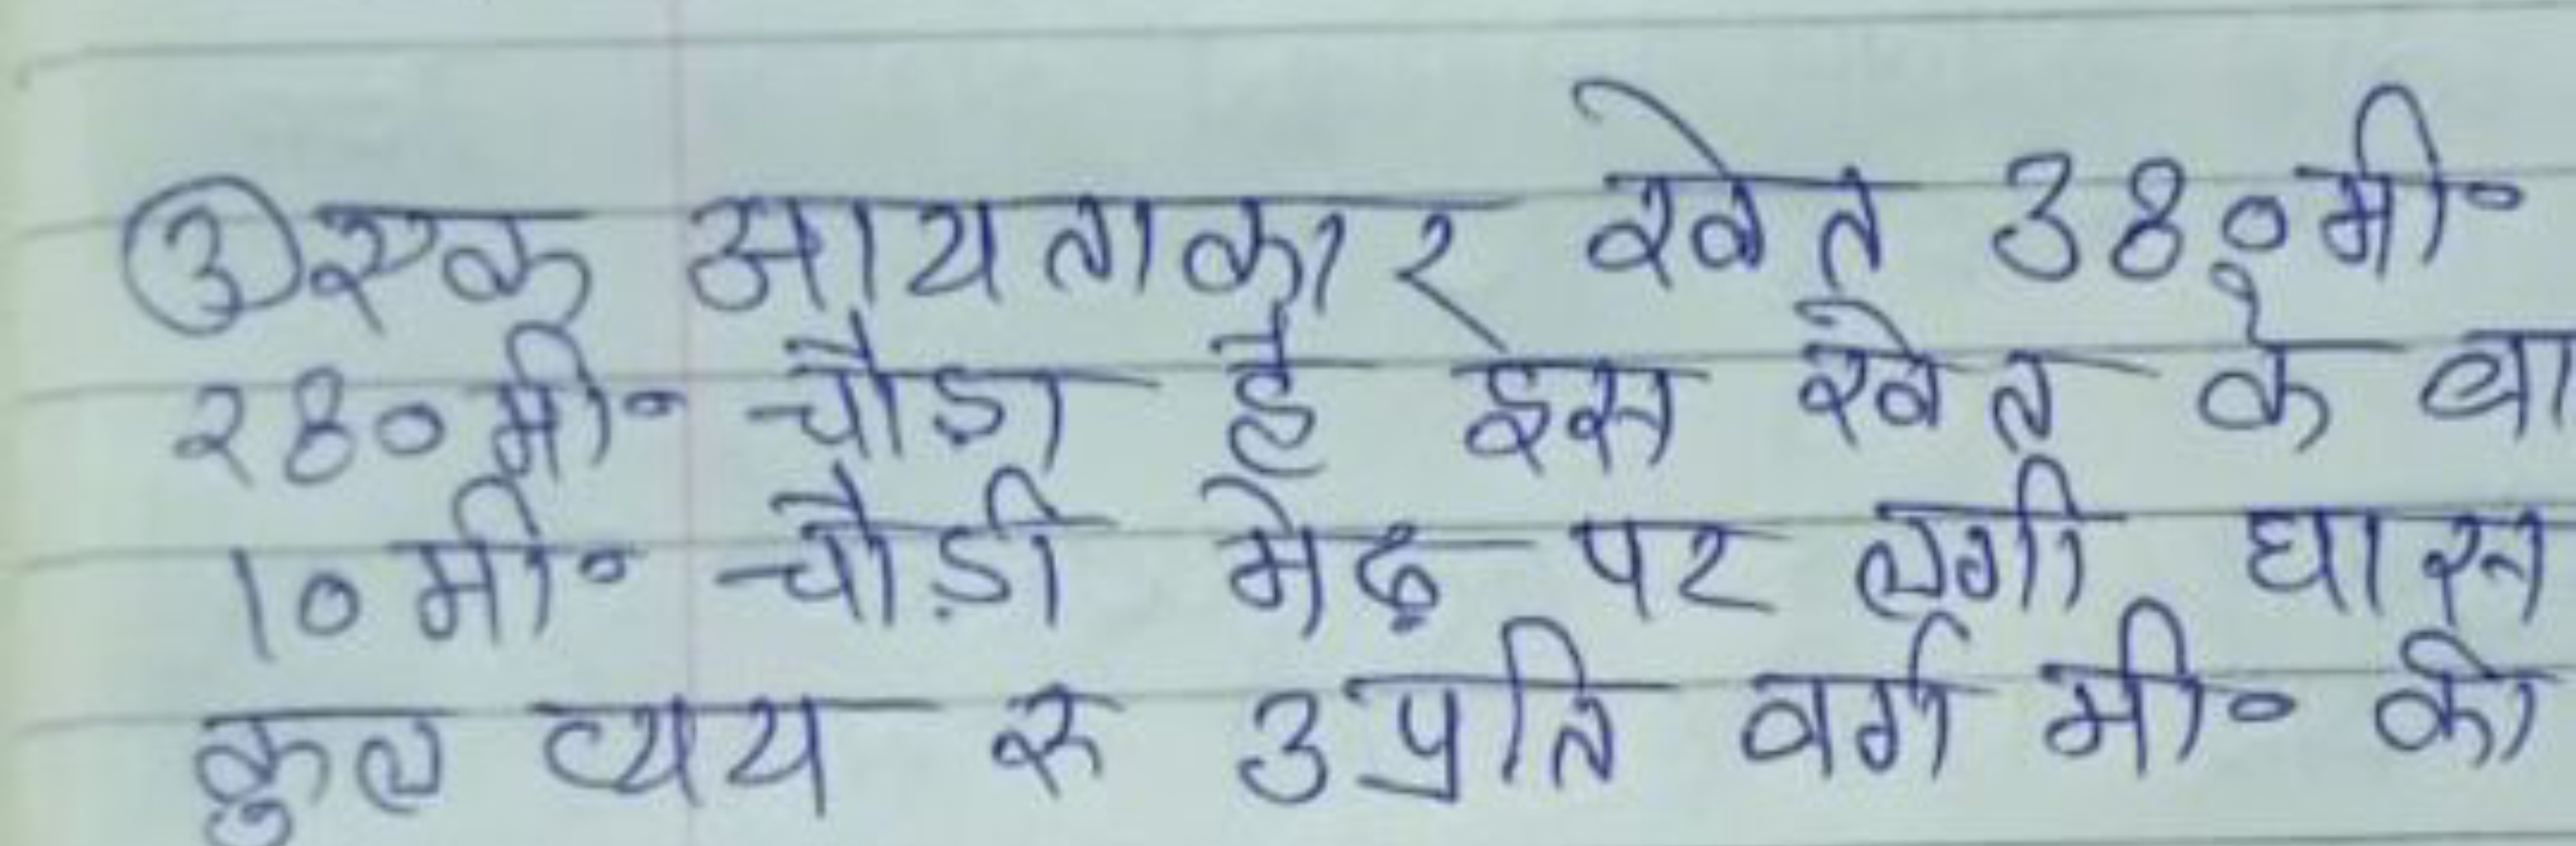 ③ एक आयताकार खेत 380 मी०
280 मी० चौड़ा है इस खेत के वा
10 मी० चौड़ी मेढ़ पर लगी घास
कुल व्यय रु 3 प्रति वर्ग मी० की